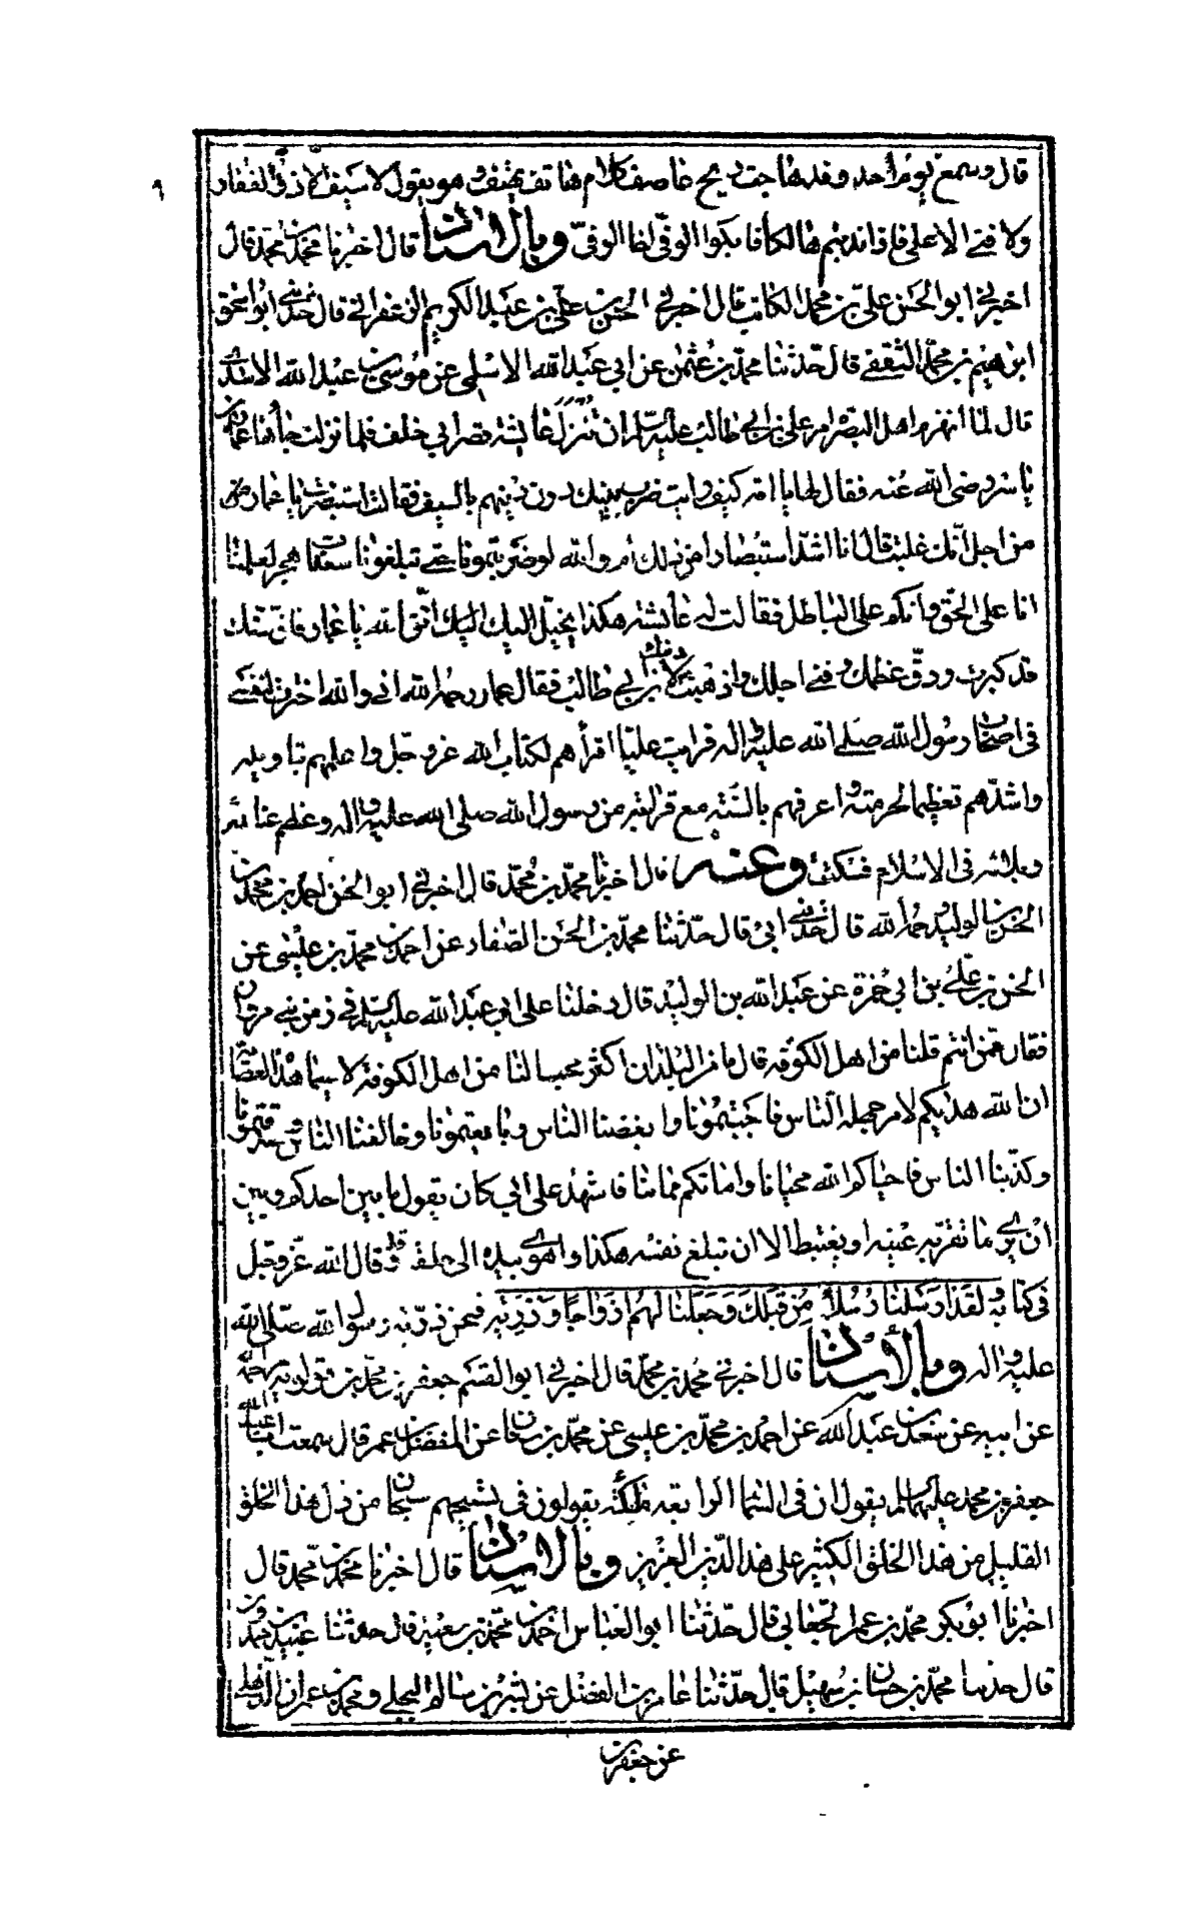 قال وسمع يوم احد وقد هاجت ريح عاصف كلام هاتف يهتف وهو يقول لا سيف الا ذو الفقار
٩
ولا فتى الا على فاذا ندبتم هالكا فابكوا الوفى اخا الوفى وبالاسناد قال اخبرنا محمد بن محمد قال
اخبرنى ابو الحسن على بن محمد الكاتب قال اخبرنى الحسن بن على بن عبد الكريم الزعفرانى قال حدثنى ابو اسحق
ابرهيم بن محمد الثقفى قال حدثنا محمد بن عثمن عن ابى عبد الله الاسلمى عن موسى بن عبد الله الاسدى
قال لما انهزم اهل البصرة امر على بن ابى طالب عليه السلام ان تنزل عايشة قصر ابى خلف فلما نزلت جاءها عمار بن
ياسر رضى الله عنه فقال لها يا امه كيف رايت ضرب بنيك دون دينهم بالسيف فقالت استبصرت يا عمار
من اجل انك غلبت قال انا اشد استبصارا من ذلك ام والله لو ضربتمونا حتى تبلغونا سعفات هجر لعلمنا
انا على الحق وانكم على الباطل فقالت له عايشة هكذا يخيل اليك اتق الله يا عمار فان سنك
قد كبرت ودق عظمك وفنى اجلك واذهبت دينك لابن ابى طالب فقال عمار رحمه الله انى والله اخترت لنفسى
فى اصحاب رسول الله صلى الله عليه واله فرايت عليا اقرأهم لكتاب الله عز وجل واعلمهم بتاويله
واشدهم تعظيما لحرمته واعرفهم بالسنة مع قرابته من رسول الله صلى الله عليه واله وعظم عنائه
وبلائه فى الاسلام فسكتت وعنه قال اخبرنا محمد بن محمد قال اخبرنى ابو الحسن احمد بن محمد بن
الحسن بن الوليد رحمه الله قال حدثنى ابى قال حدثنا محمد بن الحسن الصفار عن احمد بن محمد بن عيسى عن
الحسن بن على بن ابى حمزة عن عبد الله بن الوليد قال دخلنا على ابى عبد الله عليه السلم فى زمن بنى مروان
فقال ممن انتم قلنا من اهل الكوفة قال ما من البلدان اكثر محبا لنا من اهل الكوفة لا سيما هذه العصابة
ان الله هداكم لامر جهله الناس فاحببتمونا وابغضنا الناس وبايعتمونا وخالفنا الناس وصدقتمونا
وكذبنا الناس فاحياكم الله محيانا واماتكم مماتنا فاشهد على ابى كان يقول ما بين احدكم وبين
ان يرى ما تقر به عينه او يغتبط الا ان تبلغ نفسه هكذا واهوى بيده الى حلقه وقد قال الله عز وجل
فى كتابه ولقد ارسلنا رسلا من قبلك وجعلنا لهم ازواجا وذرية فنحن ذرية رسول الله صلى الله
عليه واله وبالاسناد قال اخبرنى محمد بن محمد قال اخبرنى ابو القسم جعفر بن محمد بن قولويه رحمه الله
عن ابيه عن سعد بن عبد الله عن احمد بن محمد بن عيسى عن محمد بن سنان عن المفضل بن عمر قال سمعت ابا عبد الله
جعفر بن محمد عليهما السلم يقول ان فى السماء الرابعة ملئكة يقولون فى تسبيحهم سبحان من دل هذا الخلق
القليل من هذا الخلق الكثير على هذا الدين العزيز وبالاسناد قال اخبرنا محمد بن محمد قال
اخبرنا ابو بكر محمد بن عمر الجعابى قال حدثنا ابو العباس احمد بن محمد بن سعيد قال حدثنا عبيد بن حمدون
قال حدثنا محمد بن حسان بن سهيل قال حدثنا عامر بن الفضل عن بشر بن سالم البجلى ومحمد بن عمران الذهلى
عن جعفر بن